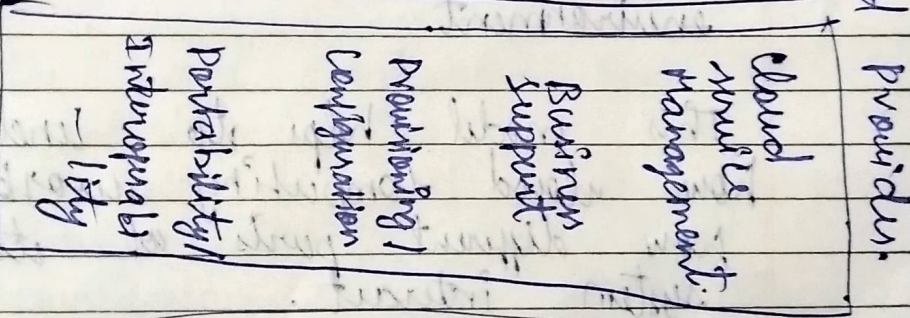 Provider.
Cloud
service
Management
Business
Support
Provisioning /
Configuration
Portability /
Interoperabi
- lity